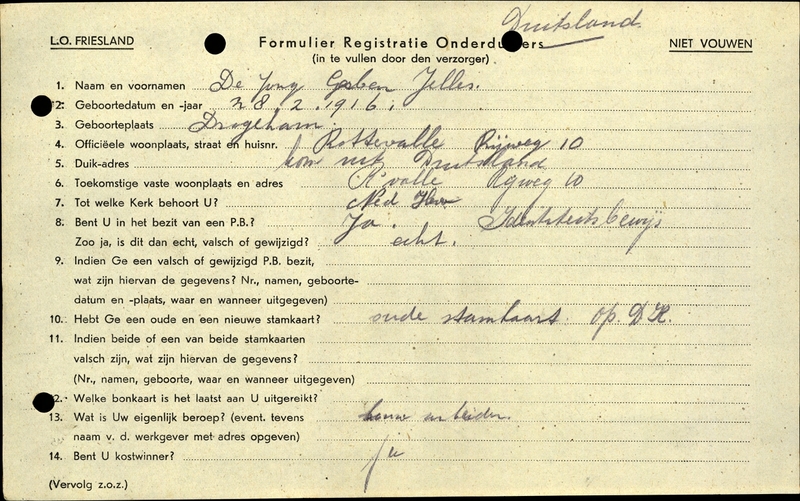 Duitsland.
L.O. FRIESLAND
Formulier Registratie Onderduikers
NIET VOUWEN
(in te vullen door den verzorger)
1. Naam en voornamen De Jong Jelles.
2. Geboortedatum en -jaar 28.2.1916.
3. Geboorteplaats Drogeham.
4. Officiëele woonplaats, straat en huisnr. Rottevalle Rijweg 10
5. Duik-adres kom uit Duitsland
6. Toekomstige vaste woonplaats en adres R'valle Rijweg 10
7. Tot welke Kerk behoort U? Ned Herv
8. Bent U in het bezit van een P.B.? Ja. Identiteitsbewijs
Zoo ja, is dit dan echt, valsch of gewijzigd? echt.
9. Indien Ge een valsch of gewijzigd P.B. bezit,
wat zijn hiervan de gegevens? Nr., namen, geboorte-
datum en -plaats, waar en wanneer uitgegeven)
10. Hebt Ge een oude en een nieuwe stamkaart? oude stamkaart op. D.K.
11. Indien beide of een van beide stamkaarten
valsch zijn, wat zijn hiervan de gegevens?
(Nr., namen, geboorte, waar en wanneer uitgegeven)
2. Welke bonkaart is het laatst aan U uitgereikt?
13. Wat is Uw eigenlijk beroep? (event. tevens
naam v. d. werkgever met adres opgeven)
14. Bent U kostwinner? Ja
(Vervolg z.o.z.)